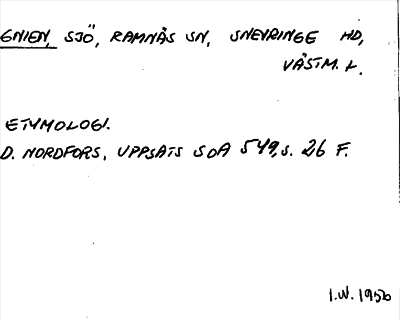 GNIEN, SJÖ, RAMNÄS SN, SNEVRINGE HD,
VÄSTM. L.
ETYMOLOGI.
D. NORDFORS, UPPSATS SOA 549, S. 26 F.
I.W. 1956